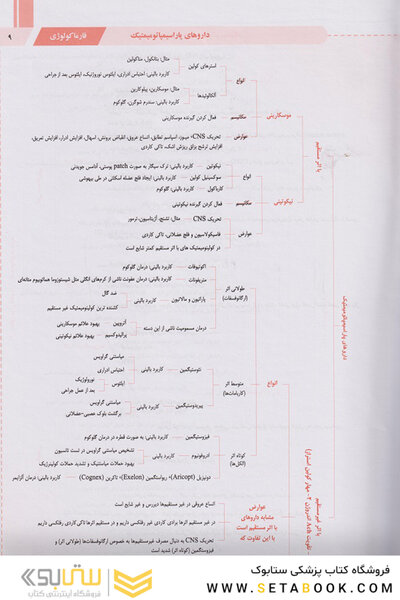 داروهای پاراسیمپاتومیمتیک
فارماکولوژی
۹
مثال: بتانکول، متاکولین
استرهای کولین
کاربرد بالینی: احتباس ادراری، ایلئوس نوروژنیک، ایلئوس بعد از جراحی
انواع
مثال: موسکارین، پیلوکارپین
آلکالوئیدها
کاربرد بالینی: سندرم شوگرن، گلوکوم
موسکارینی
مکانیسم
فعال کردن گیرنده موسکارینی
عوارض
تحریک CNS، میوز، اسپاسم تطابق، اتساع عروق، انقباض برونش، اسهال، افزایش ادرار، افزایش تعریق،
افزایش ترشح بزاق ریزش اشک، تاکی کاردی
با اثر مستقیم
نیکوتین
کاربرد بالینی: ترک سیگار به صورت patch پوستی، آدامس جویدنی
انواع
سوکسینیل کولین
کاربرد بالینی: ایجاد فلج عضله اسکلتی در طی بیهوشی
کارباکول
کاربرد بالینی: گلوکوم
نیکوتینی
مکانیسم
فعال کردن گیرنده نیکوتینی
تحریک CNS
مثال: تشنج، آژیتاسیون، ترمور
عوارض
فاسیکولاسیون و فلج عضلانی، تاکی کاردی
در کولینومیمتیک های با اثر مستقیم کمتر شایع است
داروهای پاراسیمپاتومیمتیک
اکوتیوفات
کاربرد بالینی: درمان گلوکوم
متریفونات
کاربرد بالینی: درمان عفونت ناشی از کرم‌های انگلی مثل شیستوزوما هماتوبیوم مثانه‌ای
طولانی اثر
(ارگانوفسفات)
پاراتیون و مالاتیون
کاربرد بالینی
ضد گال
کشنده ترین کولینومیمتیک غیر مستقیم
درمان مسمومیت ناشی از این دسته
آتروپین
بهبود علائم موسکارینی
پرالیدوکسیم
بهبود علائم نیکوتینی
انواع
متوسط اثر
(کاربامات‌ها)
نئوستیگمین
کاربرد بالینی
میاستنی گراویس
احتباس ادراری
ایلئوس
نورولوژیک
بعد از عمل جراحی
پیریدوستگمین
کاربرد بالینی
میاستنی گراویس
برگشت بلوک عصبی-عضلانی
فیزوستیگمین
کاربرد بالینی: به صورت قطره در درمان گلوکوم
کوتاه اثر
(الکل‌ها)
ادروفونیوم
کاربرد بالینی
تشخیص میاستنی گراویس در تست تانسیون
بهبود حملات میاستنیک و تشدید حملات کولینرژیک
دونپزیل (Aricept)، ریواستگمین (Exelon)، تاکرین (Cognex)
کاربرد بالینی: درمان آلزایمر
با اثر غیرمستقیم
عوارض
مشابه داروهای
با اثر مستقیم است
با این تفاوت که
اتساع عروقی در غیر مستقیم‌ها دیررس و غیر شایع است
در غیر مستقیم اثرها برادی کاردی غیر رفلکسی داریم و در مستقیم اثرها تاکی کاردی رفلکسی داریم
تحریک CNS به دنبال مصرف غیرمستقیم‌ها به خصوص ارگانوفسفات‌ها (طولانی اثر) و
فیزوستگمین (کوتاه اثر) شدید است
فروشگاه کتاب پزشکی ستابوک
WWW.SETABOOK.COM
ستابوک
فروشگاه اینترنتی کتاب